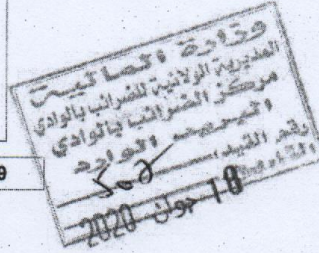 وزارة المالية
المديرية الولائية للضرائب بالوادي
مركز الضرائب بالوادي
البريد الوارد
رقم القيد:
10 جوان 2020
9